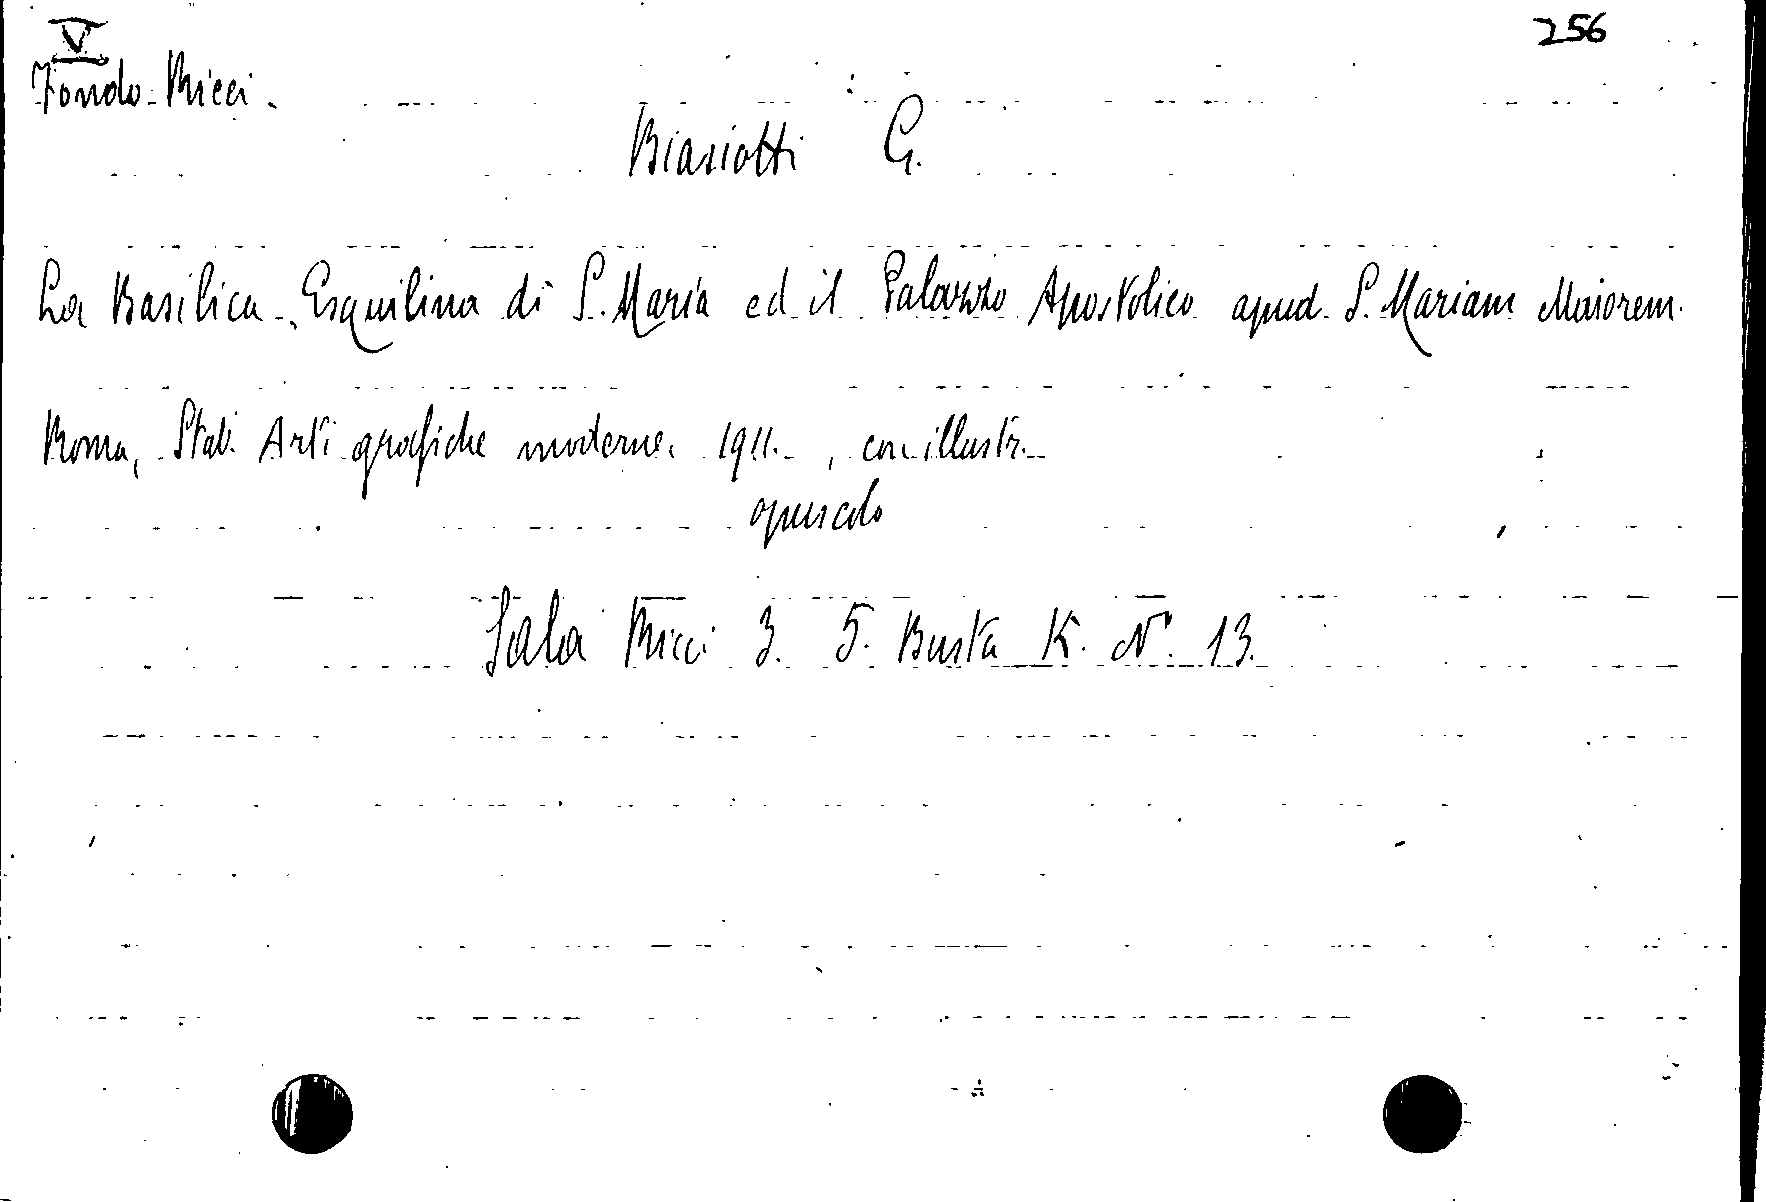 V
256
Fondo Ricci.
Biasiotti G.
La Basilica Esquilina di S. Maria ed il Palazzo Apostolico apud S. Mariam Maiorem.
Roma, Stab. Arti grafiche moderne. 1911. , con illustr.
opuscolo
Sala Ricci 3. 5. Busta K. N° 13.